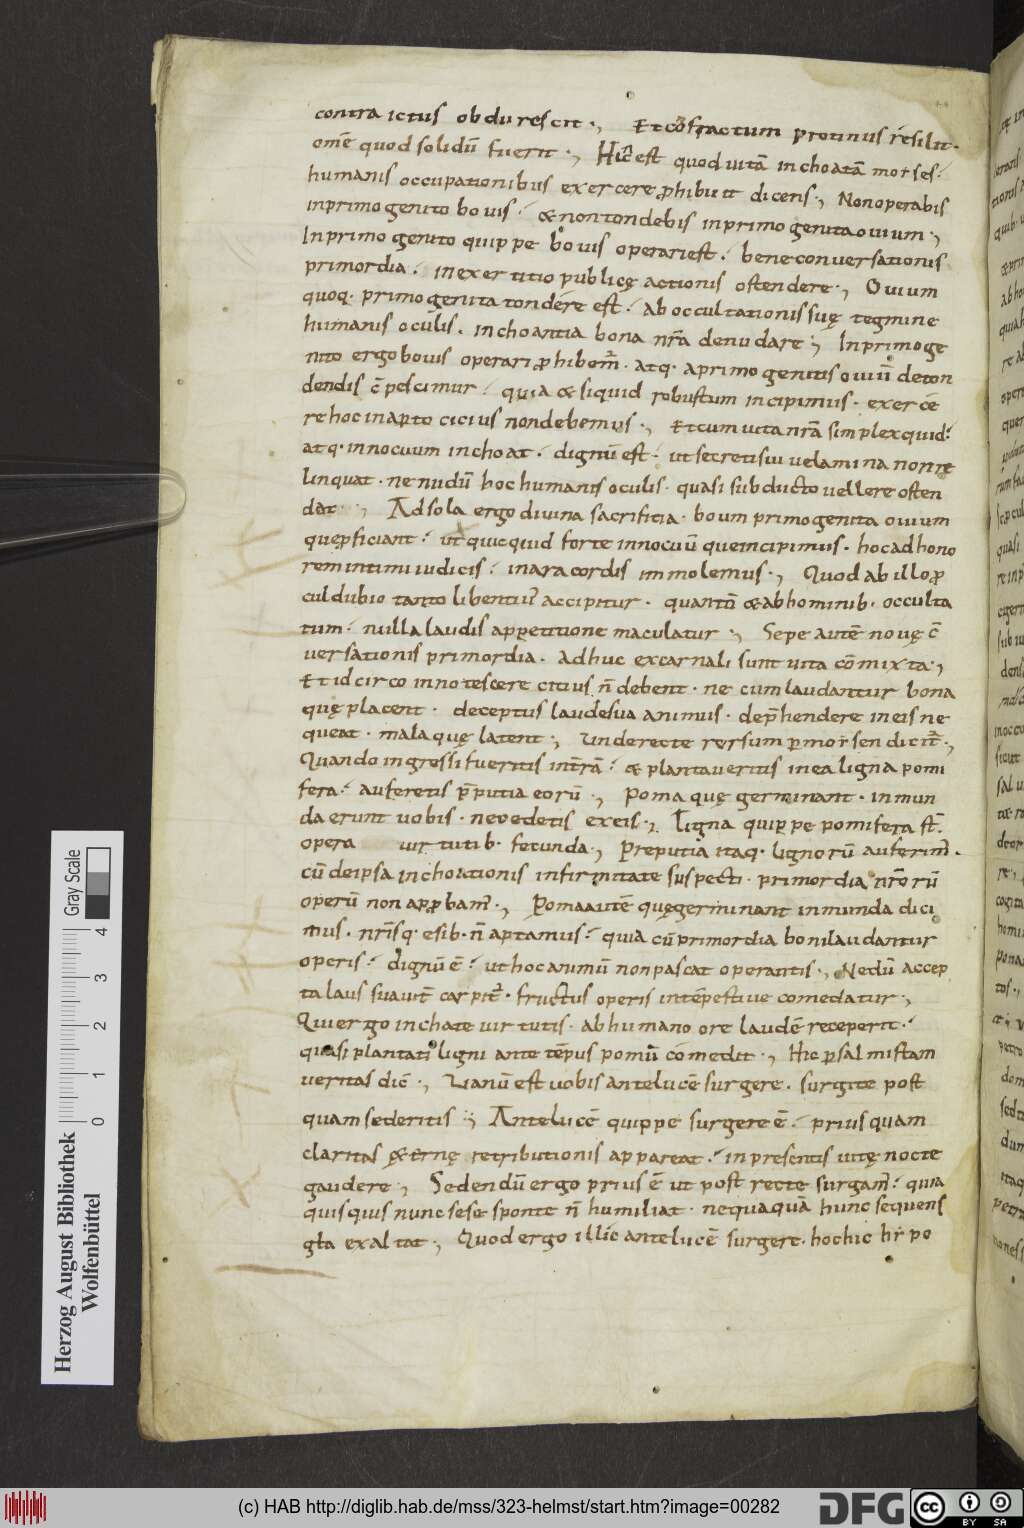 contra ictus obdurescit ., Et cōfractum protinus resilit .
omē quod solidū fuerit ., Hic est quod uitā inchoatā morses :
humanis occupationibus exercere phibuit dicens ., Non operabis
in primogenito bouis : & non tondebis in primogenita ouium .,
In primogenito quippe bouis operari est : bene conuersationis
primordia : in exertitio publicę actionis ostendere ., Ouium
quoq· primogenita tondere est : ab occultationis suę tegmine
humanis oculis . inchoantia bona nr̄a denudare ., In primoge
nito ergo bouis operari phibem̄ . atq· a primogenitis ouiū deton
dendis
re hoc in apto cicius non debemus ., Et cum uita nr̄a simplex quid :
atq· innocuum inchoat : dignū est : ut secreti sui uelamina non re
linquat . ne nudū hoc humanis oculis . quasi subducto uellere osten
dat ., Ad sola ergo diuina sacrificia . boum primogenita ouium
que pficiant : ut quicquid forte innocuū que incipimus . hoc ad hono
rem intimi iudicis : in ara cordis immolemus ., Quod ab illo p
cul dubio tanto libentius accipitur . quanto & ab hominib· occulta
tum : nulla laudis appetitione maculatur ., Sepe autē nouę c̄
uersationis primordia . adhuc ex carnali sunt uita cōmixta .,
Et idcirco innotescere citius n̄ debent . ne cum laudantur bona
quę placent . deceptus laude sua animus . dep̄hendere in eis ne
queat . mala quę latent ., Unde recte rursum p morsen dicit̄ .,
Quando ingressi fueritis int̄rā : & plantaueritis in ea ligna pomi
fera : auferetis p̄putia eorū ., Poma quę germinant . inmun
da erunt uobis . nec edetis ex eis ., Ligna quippe pomifera st̄ .
opera uirtutib· fecunda ., Preputia itaq· lignorū auferim̄ .
cū de ipsa inchoationis infirmitate suspecti . primordia nr̄orū
operū non appbam̄ ., Poma autē quę germinant inmunda dici
mus . nr̄isq· esib· n̄ aptamus : quia cū primordia boni laudantur
operis : dignū ē : ut hoc animū non pascat operantis ., Nedū accep
ta laus suauit̄ carpit̄ . fructus operis intēpestiue comedatur .,
Qui ergo inchate uirtutis . ab humano ore laudē receperit :
quasi plantati ligni ante tēpus pomū comedit ., Hic p salmistam
ueritas dic̄ ., Uanū est uobis ante lucē surgere . surgite post
quam sederitis ., Ante lucē quippe surgere ē : prius quam
claritas &ernę retributionis appareat : in presentis uitę nocte
gaudere ., Sedendū ergo prius ē ut post recte surgam̄ : quia
quisquis nunc sese sponte n̄ humiliat . nequaquā hunc sequens
gła exaltat ., Quod ergo illic ante lucē surgere . hoc hic
Herzog August Bibliothek
Wolfenbüttel
0 1 2 3 4
Gray Scale
(c) HAB http://diglib.hab.de/mss/323-helmst/start.htm?image=00282
DFG
cc BY SA